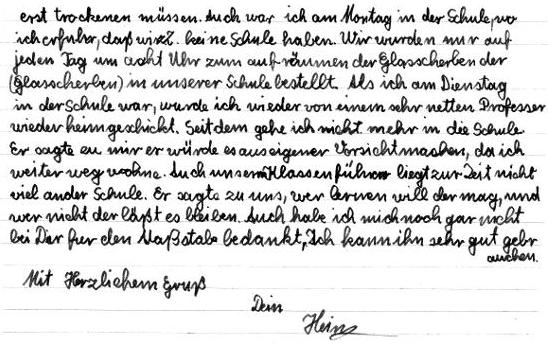 erst trockenen müssen. Auch war ich am Montag in der Schule, wo
ich erfuhr, daß wir z. keine Schule haben. Wir wurden nur auf
jeden Tag um acht Uhr zum aufräumen der Glasscherben der
(glasscherben) in unserer Schule bestellt. Als ich am Dienstag
in der Schule war, wurde ich wieder von einem sehr netten Professer
wieder heimgeschickt. Seitdem gehe ich nicht mehr in die Schule.
Er sagte zu mir er würde es aus eigener Vorsicht machen, da ich
weiter weg wohne. Auch unserem Klassenführer liegt zur Zeit nicht
viel an der Schule. Er sagte zu uns, wer lernen will der mag, und
wer nicht der läßt es bleiben. Auch habe ich mich noch gar nicht
bei Dir für den Maßstabe bedankt, Ich kann ihn sehr gut gebr
auchen.
Mit Herzlichem Gruß
Dein
Heinz